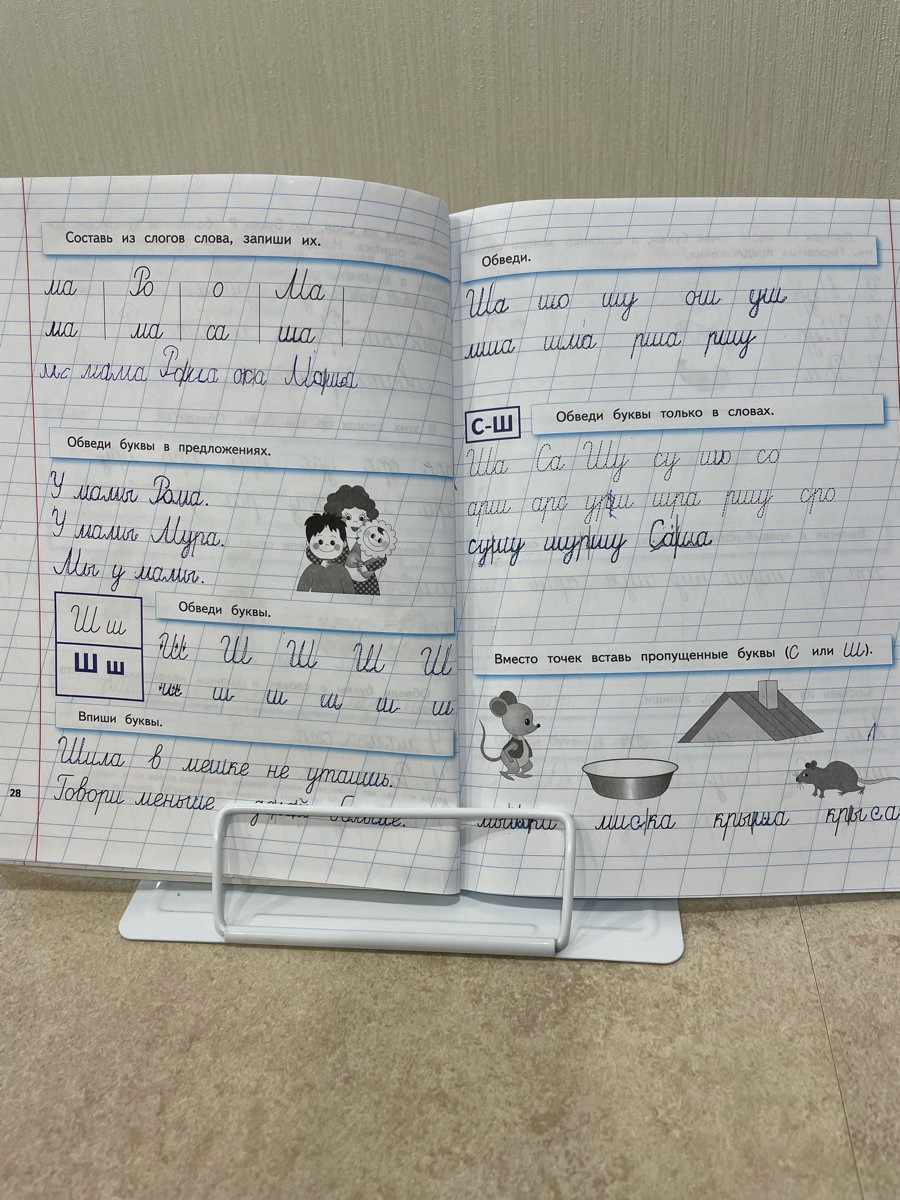 Составь из слогов слова, запиши их.
ма Ро о Ма
ма ма са ша
мама оса
Обведи буквы в предложениях.
У мамы Рома.
У мамы Мура.
Мы у мамы.
Ш ш
Ш ш
Обведи буквы.
Ш Ш Ш Ш Ш
ш ш ш ш ш ш
Впиши буквы.
Шила в мешке не утаишь.
Говори меньше больше.
28
Обведи.
Ша шо шу ош уш
мша шма рша ршу
С-Ш
Обведи буквы только в словах.
Ша Са Шу су шю со
арш арс урш шра ршу сро
сушу шуршу Саша
Вместо точек вставь пропущенные буквы (С или Ш).
миска крыша крыса